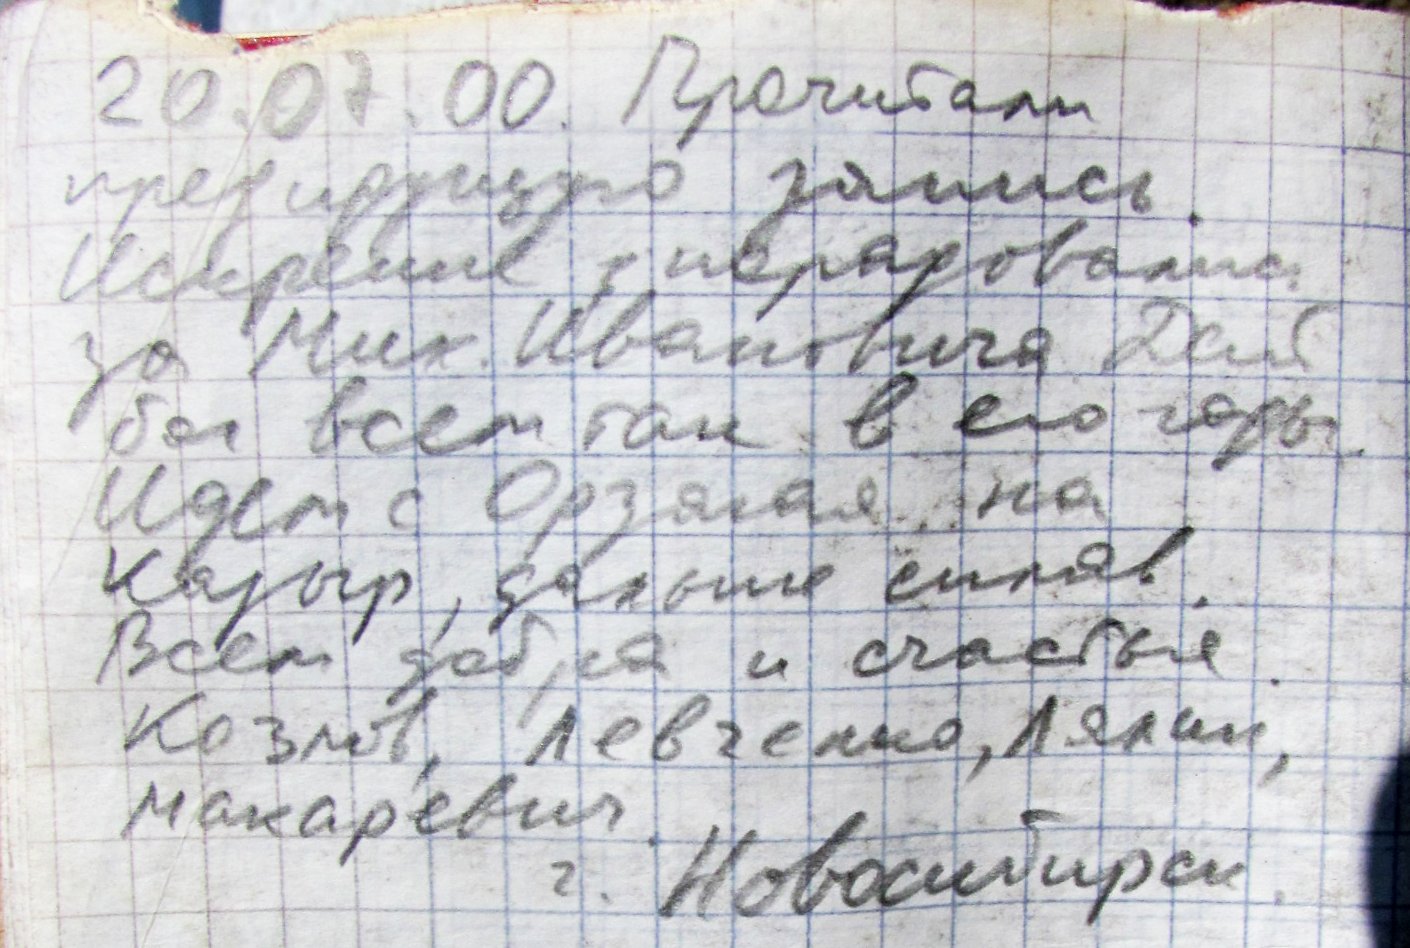 20.07.00. Прочитали
предидущую запись.
Искренне порадовались
за Мих. Ивановича Дай
бог всем так в его годы.
Идем с Орзагая на
Казыр, дальше сплав.
Всем добра и счастья.
Козлов, Левченко, Лялин,
Макаревич.
г. Новосибирск.